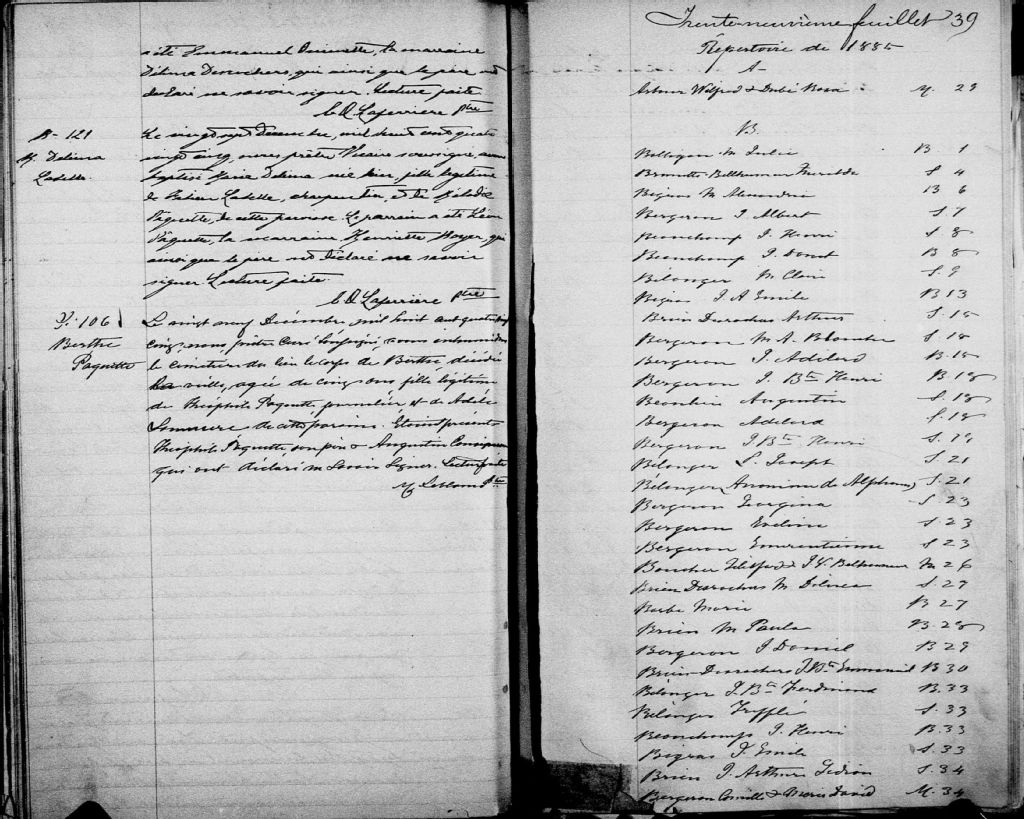 été Emmanuel Ouimette, la marraine
Délima Desrochers, qui ainsi que le père ont
déclaré ne savoir signer. Lecture faite
C. O. Laferrière Ptre
B- 121
M. Delima
Labelle
Le vingt neuf Decembre, mil huit cent quatre
vingt cinq, nous prêtre Vicaire soussigné, avons
baptisé Maria Delima née hier, fille légitime
de Labelle, charpentier, et de
Paquette, de cette paroisse. Le parrain a été Léon
Paquette, la marraine, Henriette Mayer, qui
ainsi que le père ont déclaré ne savoir
signer. Lecture faite.
C. O. Laferrière Ptre
S. 106
Berthe
Paquette
Le vingt neuf Décembre, mil huit cent quatre vingt
cinq, nous prêtre Curé soussigné, avons inhumé dans
le cimetière du lieu le corps de Berthe, décédée
la veille, agée de cinq ans fille légitime
de Théophile Paquette, journalier et de Adèle
de cette paroisse. Etaient présents
Théophile Paquette, son père & Augustin
qui ont déclaré ne savoir signer. Lecture faite
M. Leblanc Ptre
Trente-neuvième feuillet 39
Répertoire de 1885
A
Arbour Wilfred & Bosse M. 29
B.
M Julie B 1
Brunette Bellhumeur S 4
Bigras M Alexandria B 6
Bergeron J Albert S. 7
Beauchamp J. Henri S. 8
Beauchamp J. Donat B 8
Bélanger M Clair S. 9
Bigras J. A Emile B 13
Brien Durochas Arthur S. 15
Bergeron M. A. Blanche S. 18
Bergeron J. Adelard B. 18
Bergeron J. Bte Henri B. 18
Beaulieu Augustin S. 18
Bergeron Adelard S. 18
Bergeron J. Bte Henri S. 19
Bélanger L. Joseph S. 21
Bélanger (Anonime de Alphonse) S. 21
Bergeron Georgina S. 23
Bergeron Eveline S. 23
Bergeron Emerentienne S 23
Boucher & Bellhumeur M 26
Brien Desrochers M Delima S. 27
Barbe Marie B 27
Brien M Paula B. 28
Bergeron J Daniel B 29
Brien Desrochers J. Bte Emmanuel B 30
Bélanger J. Bte Ferdinand B. 33
Bélanger Trefflé S. 33
Beauchamp J. Henri B. 33
Bigras J. Emile S. 33
Brien J. Arthur Gédéon S. 34
Bergeron Camille & Marie David M. 34